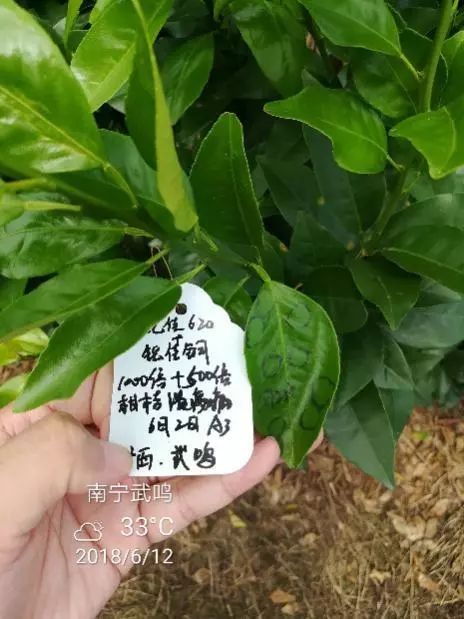 佳620
+
佳司
1000倍+500倍
甜桔溃疡病
6月2日 A3
西.武鸣
南宁武鸣
33°C
2018/6/12